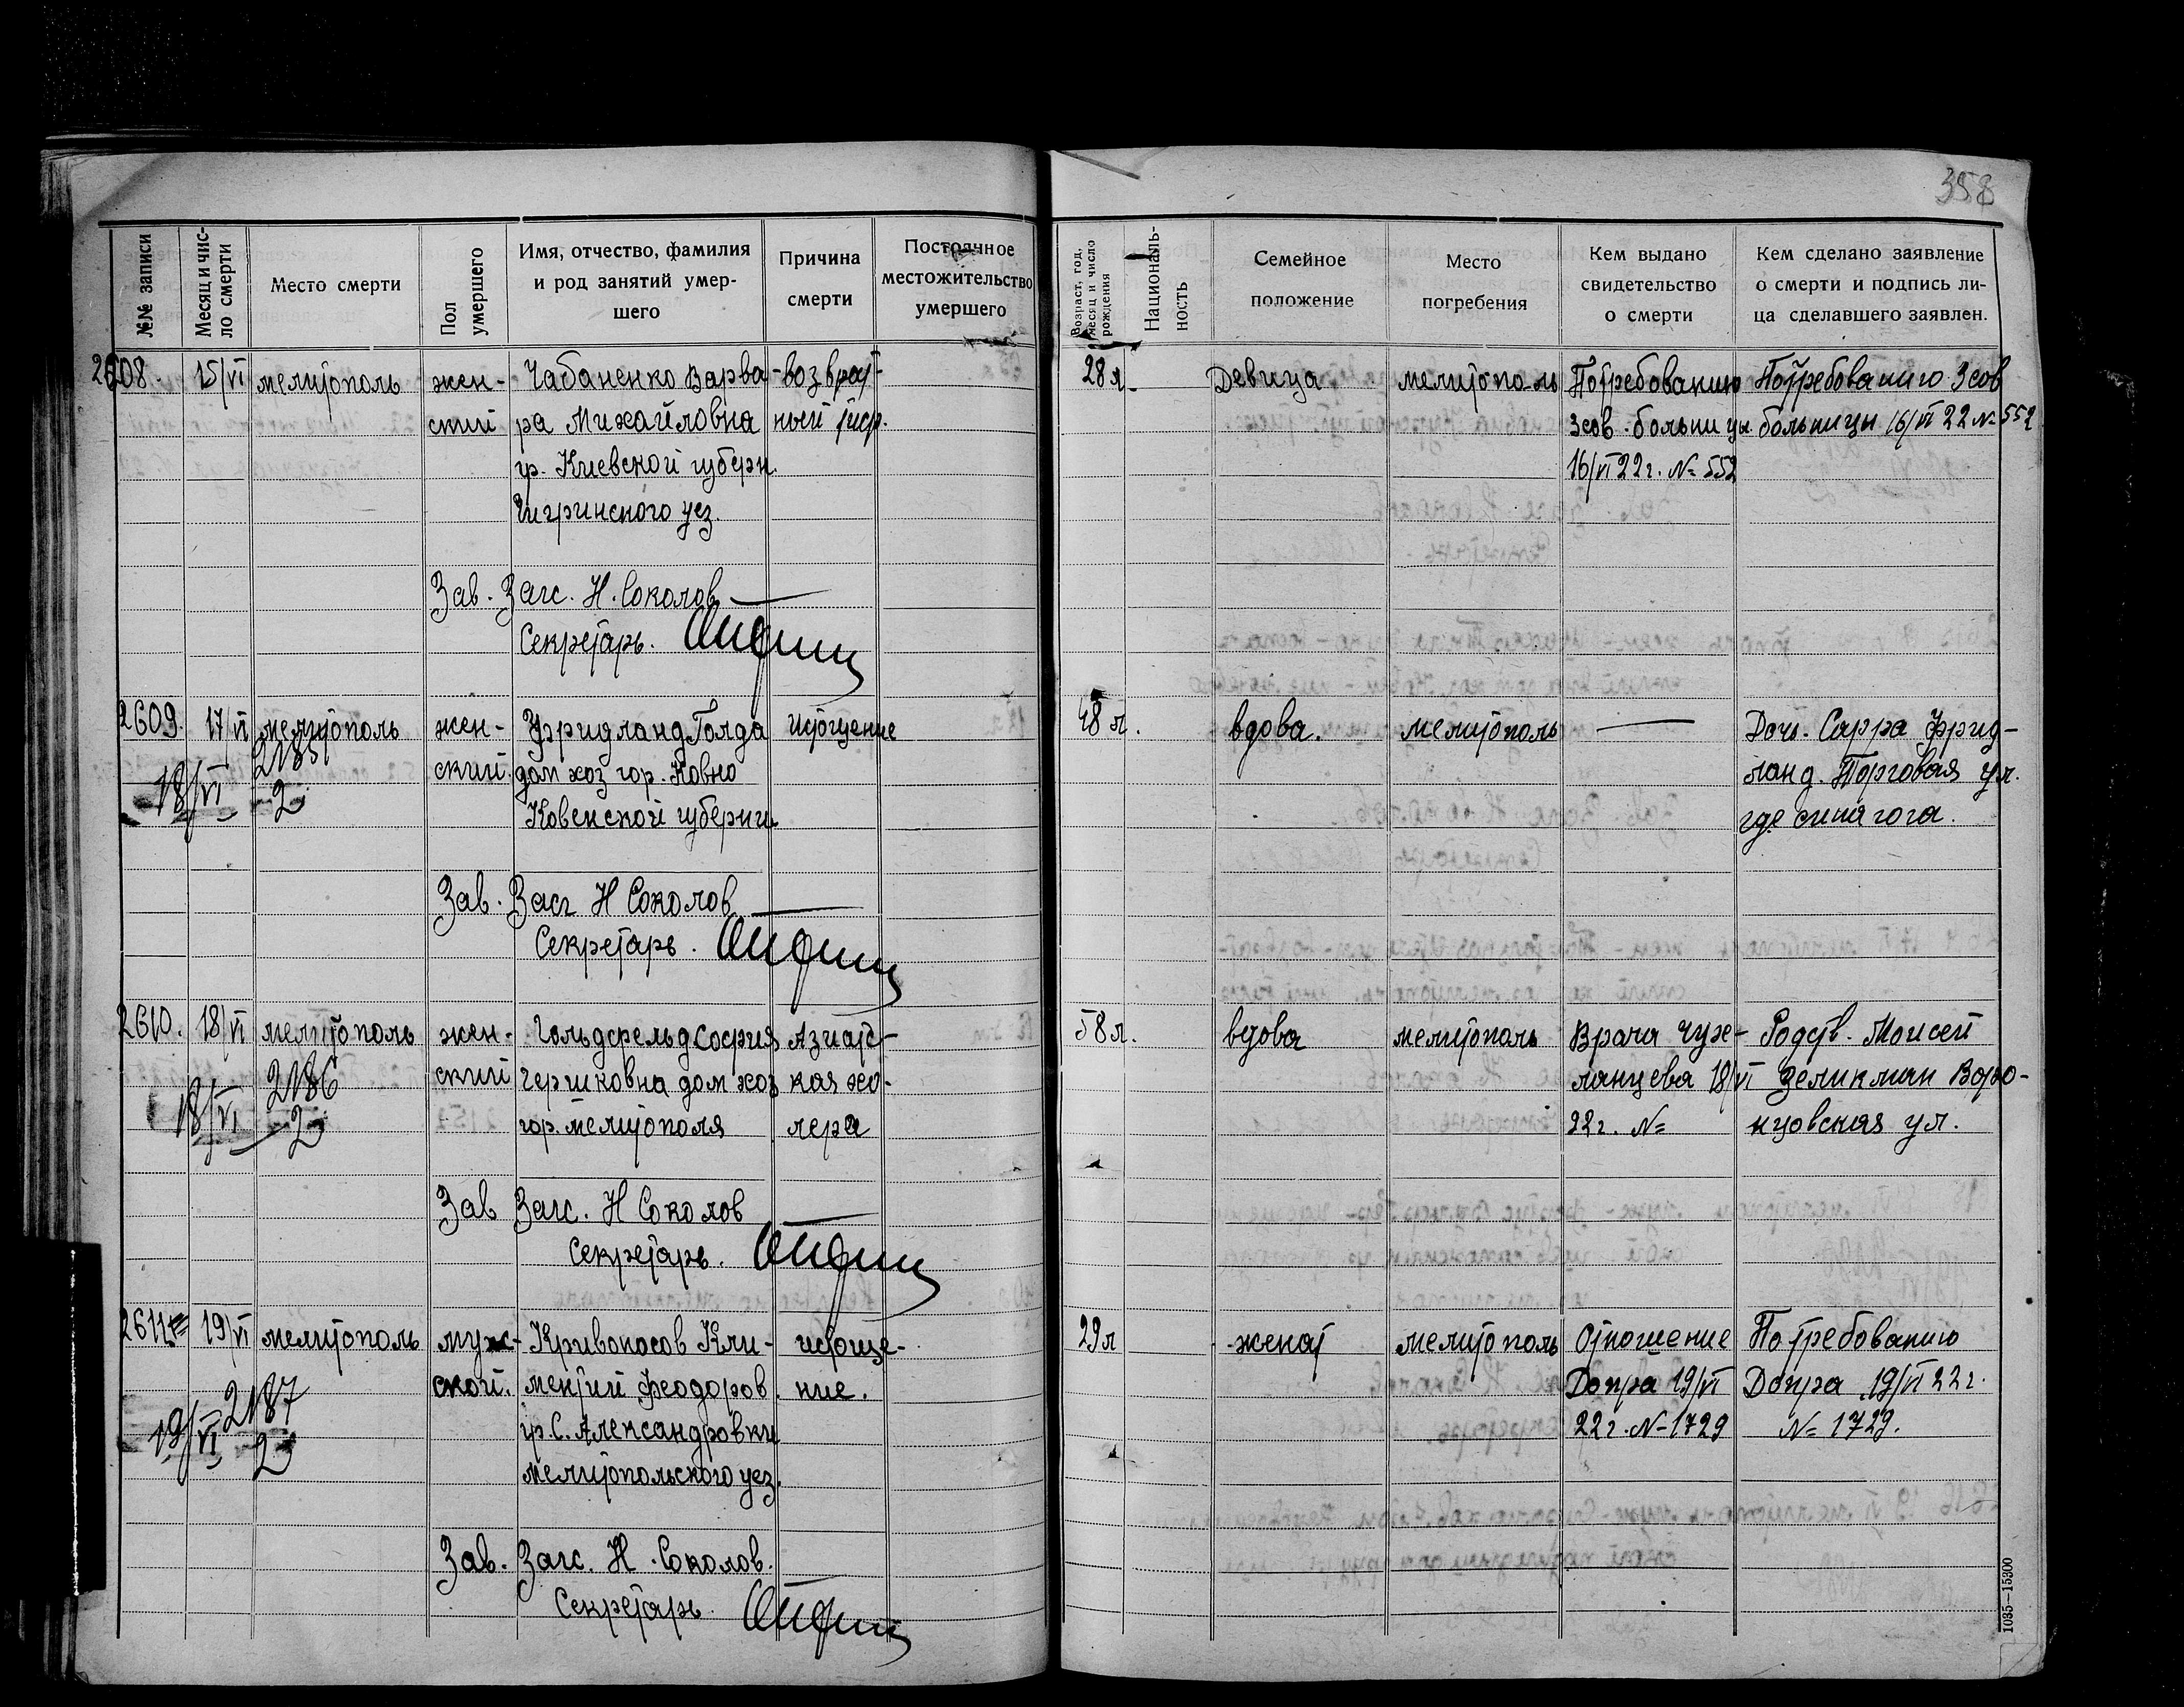 358
№№ записи
Месяц и чис-
ло смерти
Место смерти
Пол
умершего
Имя, отчество, фамилия
и род занятий умер-
шего
Причина
смерти
Постоянное
местожительство
умершего
Возраст, год,
месяц и число
рождения
Националь-
ность
Семейное
положение
Место
погребения
Кем выдано
свидетельство
о смерти
Кем сделано заявление
о смерти и подпись ли-
ца сделавшего заявлен.
2608. 15/VI мелитополь жен- Чабаненко Варва- возврат- 28 л. Девица. мелитополь По требованию По требованию 3 сов
ский ра Михайловна ный тиф. 3 сов. больницы больницы 16/VI 22 № 552
гр. Киевской губерн. 16/VI 22 г. № 552
Чигринского уез.
Зав. Загс. Н. Соколов
Секретарь.
2609. 17/VI мелитополь жен- Фридланд Голда истощение 48 л. вдова. мелитополь — Дочь. Сарра Фрид-
ский дом хоз гор. Ковно ланд. Торговая ул.
Ковенской губернии где синагога.
18/VI 2185
2
Зав. Загс Н Соколов
Секретарь.
2610. 18/VI мелитополь жен- Гольдфельд София Азиатс- 58 л. вдова мелитополь Врача Чуже- Родств. Моисей
ский Гершковна дом хоз кая хо- ланцева 18/VI ЗеликманВоро-
гор. мелитополя лера 22 г. № нцовская ул.
18/VI 2186
2
Зав Загс. Н Соколов
Секретарь.
2611 19/VI мелитополь муж- Кривоносов Кли- истоще- 29 л женат мелитополь Отношение По требованию
ской. ментий Феодоров. ние. Допра 19/VI Допра 19/VI 22 г.
гр. С. Александровки 22 г. № 1729 № 1729.
мелитопольского уез.
19/VI 2187
2
Зав. Загс. Н. Соколов.
Секретарь.
1035—15300